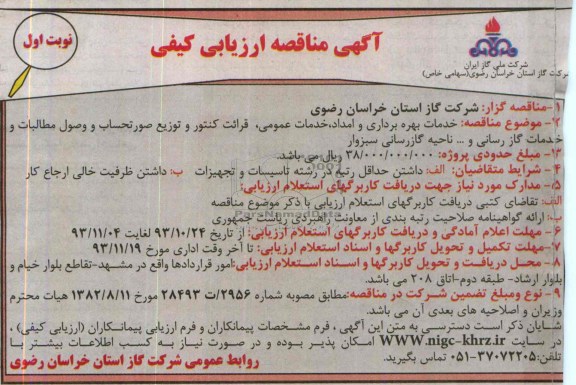 نوبت اول
آگهی مناقصه ارزیابی کیفی
شرکت ملی گاز ایران
شرکت گاز استان خراسان رضوی(سهامی خاص)
۱-مناقصه گزار: شرکت گاز استان خراسان رضوی
۲- موضوع مناقصه: خدمات بهره برداری و امداد،خدمات عمومی، قرائت کنتور و توزیع صورتحساب و وصول مطالبات و
خدمات گاز رسانی و ... ناحیه گازرسانی سبزوار
۳- مبلغ حدودی پروژه: ۳۸/۰۰۰/۰۰۰/۰۰۰ ریال می باشد.
۴- شرایط متقاضیان: الف: داشتن حداقل رتبه در رشته تاسیسات و تجهیزات ب: داشتن ظرفیت خالی ارجاع کار
۵- مدارک مورد نیاز جهت دریافت کاربرگهای استعلام ارزیابی:
الف: تقاضای کتبی دریافت کاربرگهای استعلام ارزیابی با ذکر موضوع مناقصه
ب: ارائه گواهینامه صلاحیت رتبه بندی از معاونت راهبردی ریاست جمهوری
۶- مهلت اعلام آمادگی و دریافت کاربرگهای استعلام ارزیابی: از تاریخ ۹۳/۱۰/۲۴ لغایت ۹۳/۱۱/۰۴
۷- مهلت تکمیل و تحویل کاربرگها و اسناد استعلام ارزیابی: تا آخر وقت اداری مورخ ۹۳/۱۱/۱۹
۸- محل دریافت و تحویل کاربرگها و اسناد استعلام ارزیابی:امور قراردادها واقع در مشهد-تقاطع بلوار خیام و
بلوار ارشاد- طبقه دوم-اتاق ۲۰۸ می باشد.
۹- نوع ومبلغ تضمین شرکت در مناقصه:مطابق مصوبه شماره ۲۹۵۶/ت ۲۸۴۹۳ مورخ ۱۳۸۲/۸/۱۱ هیات محترم
وزیران و اصلاحیه های بعدی آن می باشد.
شایان ذکر است دسترسی به متن این آگهی ، فرم مشخصات پیمانکاران و فرم ارزیابی پیمانکاران (ارزیابی کیفی) ،
در سایت WWW.nigc-khrz.ir امکان پذیر بوده و در صورت نیاز به کسب اطلاعات بیشتر با
تلفن:۳۷۰۷۲۲۰۵-۰۵۱ تماس بگیرید.
روابط عمومی شرکت گاز استان خراسان رضوی